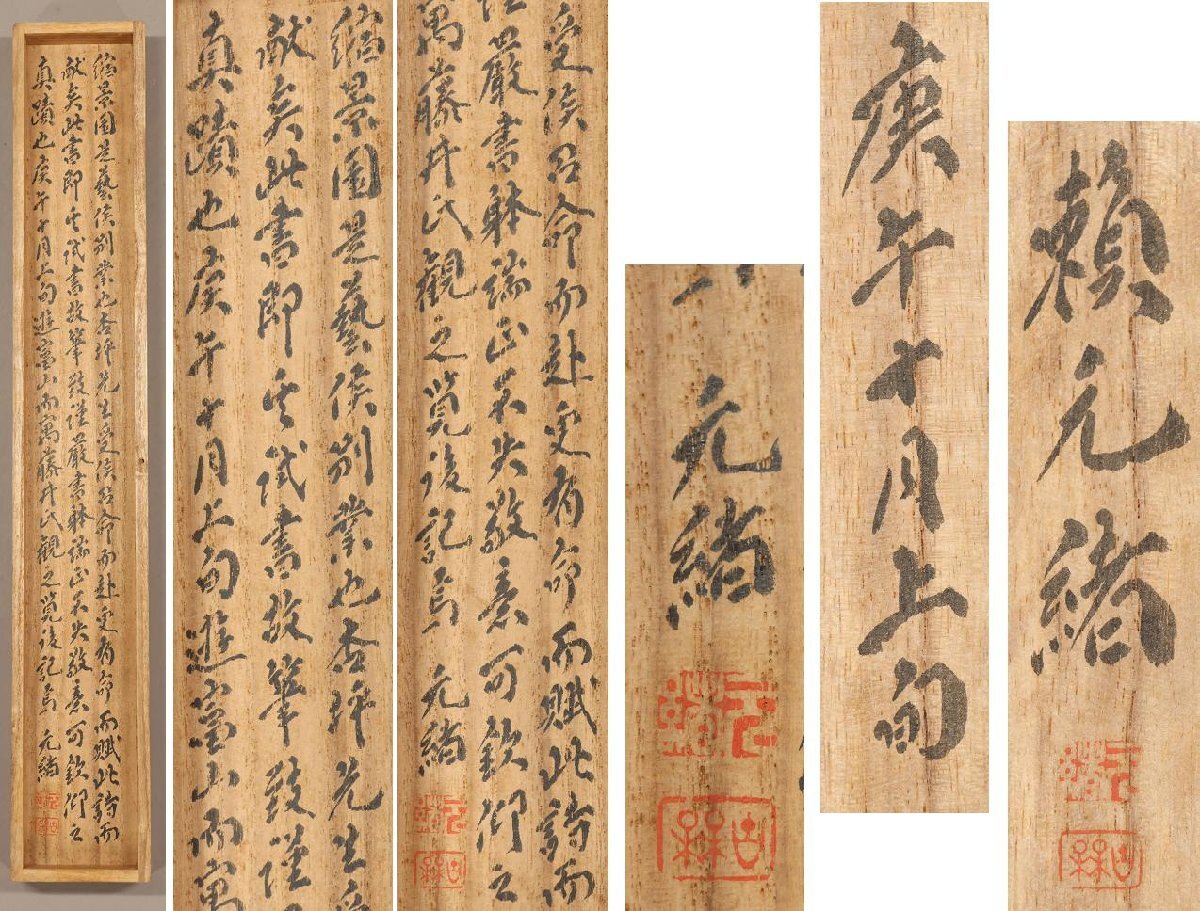 縮景園是藝侯別業也杏坪先生受侯召命而赴更有命而賦此詩而
献矣此書即其試書故筆致謹嚴書躰端正不失敬意可欽仰之
真蹟也庚午十月上旬遊富山而寓藤井氏觀之覧後記焉 元緒
縮景園是藝侯別業也杏坪先生受
献矣此書即其試書故筆致謹
真蹟也庚午十月上旬遊富山而寓
受侯召命而赴更有命而賦此詩而
嚴書躰端正不失敬意可欽仰之
寓藤井氏觀之覧後記焉 元緒
元緒
庚午十月上旬
頼元緒